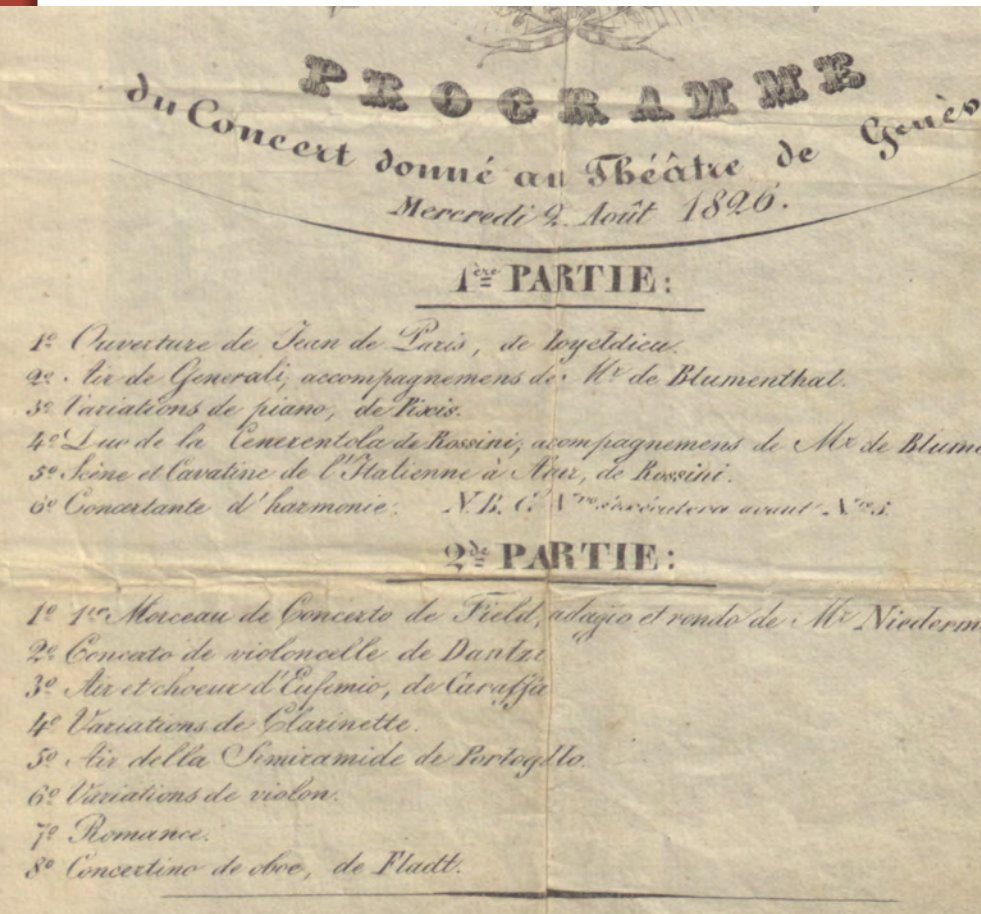 PROGRAMME
du Concert donné au Théâtre de Genèv
Mercredi 2. Août 1826.
1ère PARTIE:
1º Ouverture de Jean de Paris, de Boyeldieu.
2º Air de Generali, accompagnemens de Mr de Blumenthal.
3º Variations de piano, de Pixis.
4º Duo de la Cenerentola de Rossini, acompagnemens de Mr de Blume
5º Scène et Cavatine de l'Italienne à Alger, de Rossini.
6º Concertante d'harmonie. N.B. Ce Nro s'exécutera avant Nro 5
2de PARTIE:
1º 1er Morceau de Concerto de Field, adagio et rondo de Mr Niederm
2º Concerto de violoncelle de Dantzi
3º Air et choeur d'Eufemio, de Caraffa
4º Variations de Clarinette.
5º Air della Semiramide de Portogllo.
6º Variations de violon.
7º Romance.
8º Concertino de oboe, de Fladt.